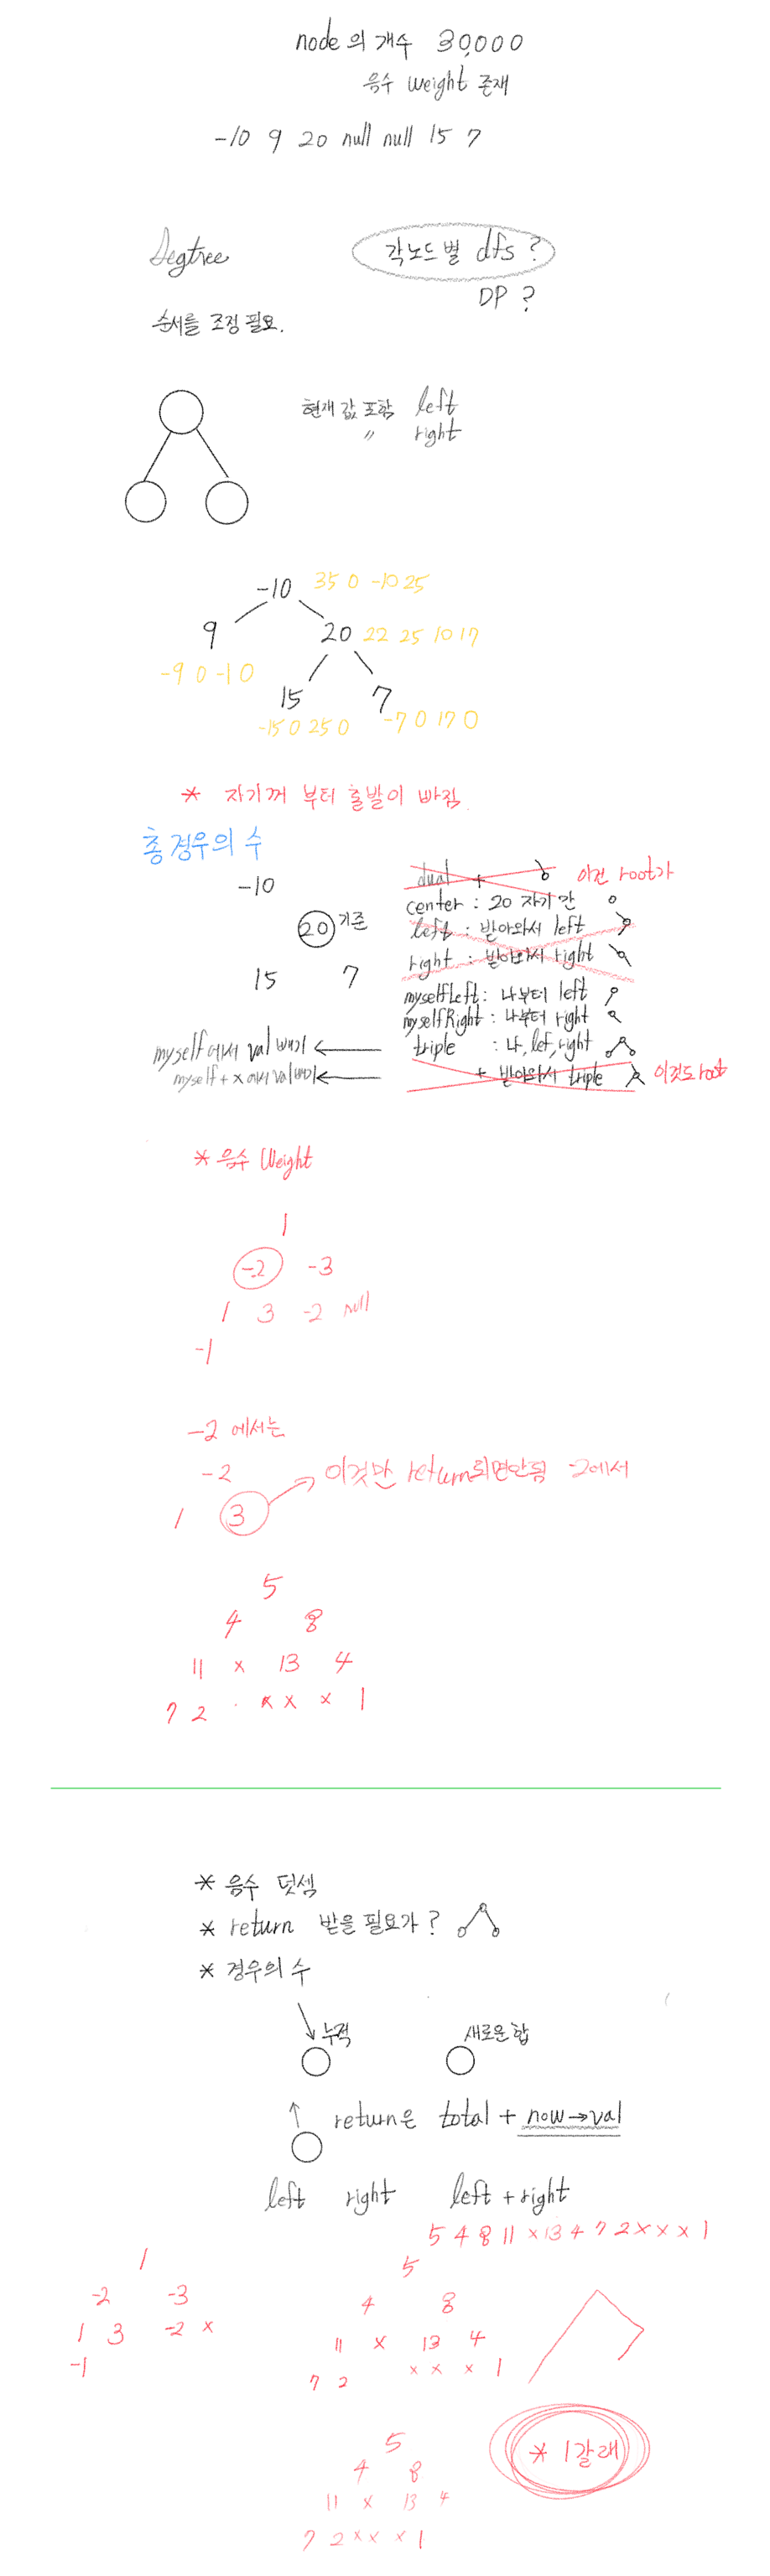 node의 개수 30,000
음수 weight 존재
-10 9 20 null null 15 7
Segtree
각노드별 dfs ?
DP ?
순서를 조정 필요.
현재 값 포함 left
〃 right
-10 35 0 -10 25
9 20 22 25 10 17
-9 0 -10
15 7
-15 0 25 0 -7 0 17 0
* 자기꺼 부터 출발이 빠짐
총 경우의 수
-10
20 기준
15 7
dual + 이건 root가
center : 20 자기만
left : 받아와서 left
right : 받아와서 right
myselfLeft : 나부터 left
myselfRight : 나부터 right
myself 에서 val 빼기 ← triple : 나, lef, right
myself + x 에서 val 빼기 ← + 받아와서 triple 이것도 root
* 음수 Weight
1
-2 -3
1 3 -2 null
-1
-2 에서는
-2
1 3 이것만 return되면안됨 -2에서
5
4 8
11 x 13 4
7 2 · x x x 1
* 음수 덧셈
* return 받을 필요가?
* 경우의 수
누적 새로운합
return은 total + now→val
left right left + right
5 4 8 11 x 13 4 7 2 x x x 1
1
-2 -3
1 3 -2 x
-1
5
4 8
11 x 13 4
7 2 x x x 1
* 1갈래
5
4 8
11 x 13 4
7 2 x x x 1